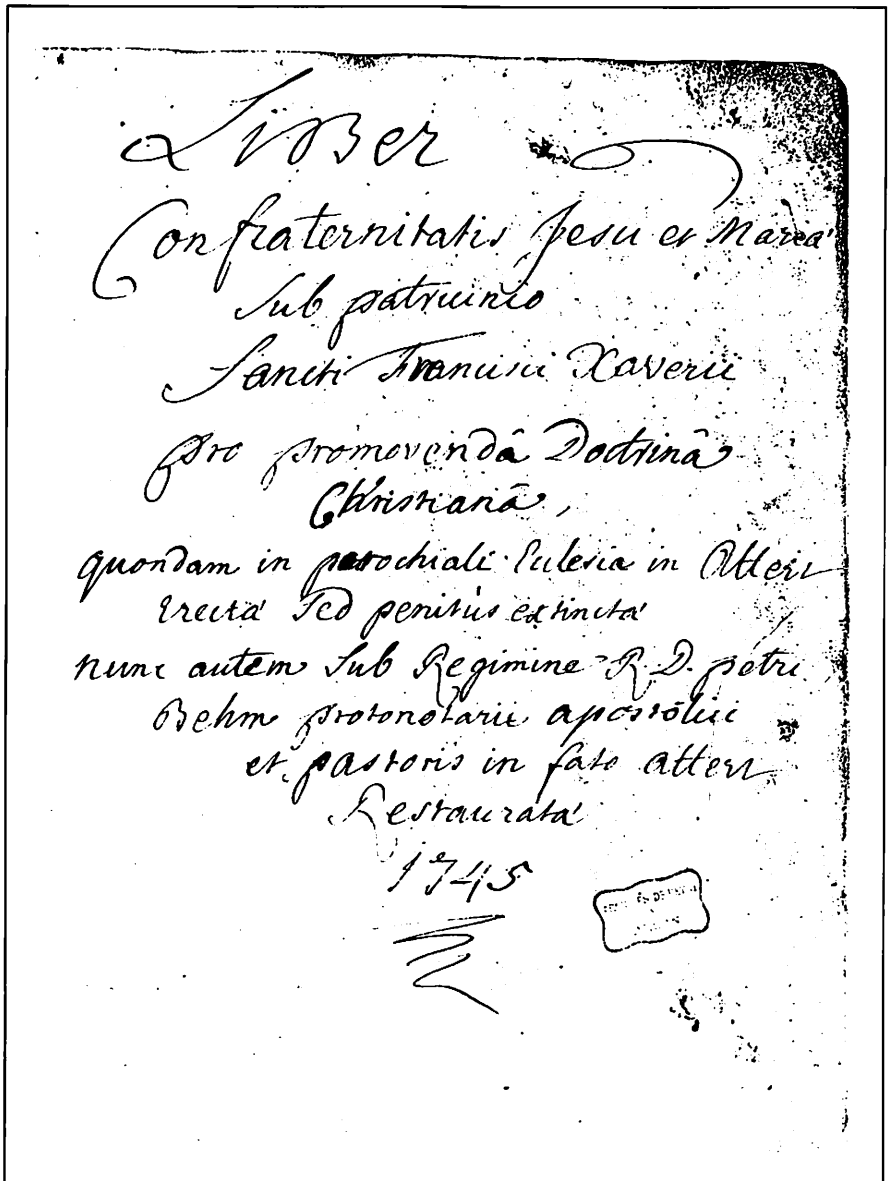 Liber
Confraternitatis Jesu et Mariæ
Sub patrocinio
Sancti Francisci Xaverii
pro promovendâ Doctrinâ
Christianâ,
quondam in parochiali Eclesia in Attert
Erecta Sed penitùs extincta
nunc autem Sub Regimine R. D. petri
Behm protonotarii apostolici
et pastoris in fato attert
Restaurata
1745